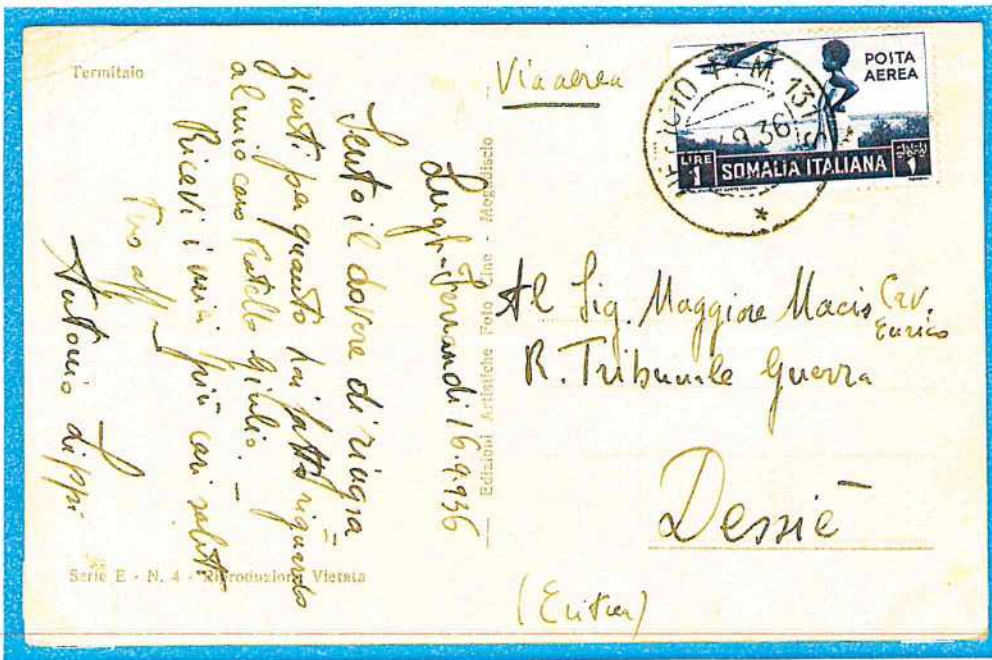 Termitaio
Via aerea
POSTA
AEREA
LIRE
1
SOMALIA ITALIANA
UFFICIO P.M. 131
9 36
Lugh-Ferrandi 16.9.936
Sento il dovere di ringra
ziarti per quanto hai fatto riguardo
al mio caro fratello Giulio.
Ricevi i miei più cari saluti
tuo aff
Antonio
Edizioni Artistiche Foto Cine - Mogadiscio
Al Sig. Maggiore Macis Cav.
Enrico
R. Tribunale Guerra
Dessiè
(Eritrea)
Serie E - N. 4 - Riproduzione Vietata